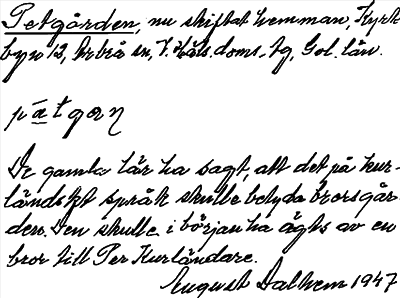 Petgården, nu skiftat hemman, Kyrk
byn 12, Arbrå sn, V. Häls. doms.-tg, Gvl. län.
pätgaṇ
De gamla lär ha sagt, att det på kur-
ländskt språk skulle betyda brorsgår-
den. Den skulle i början ha ägts av en
bror till Per Kurländare.
August Dalhem 1947